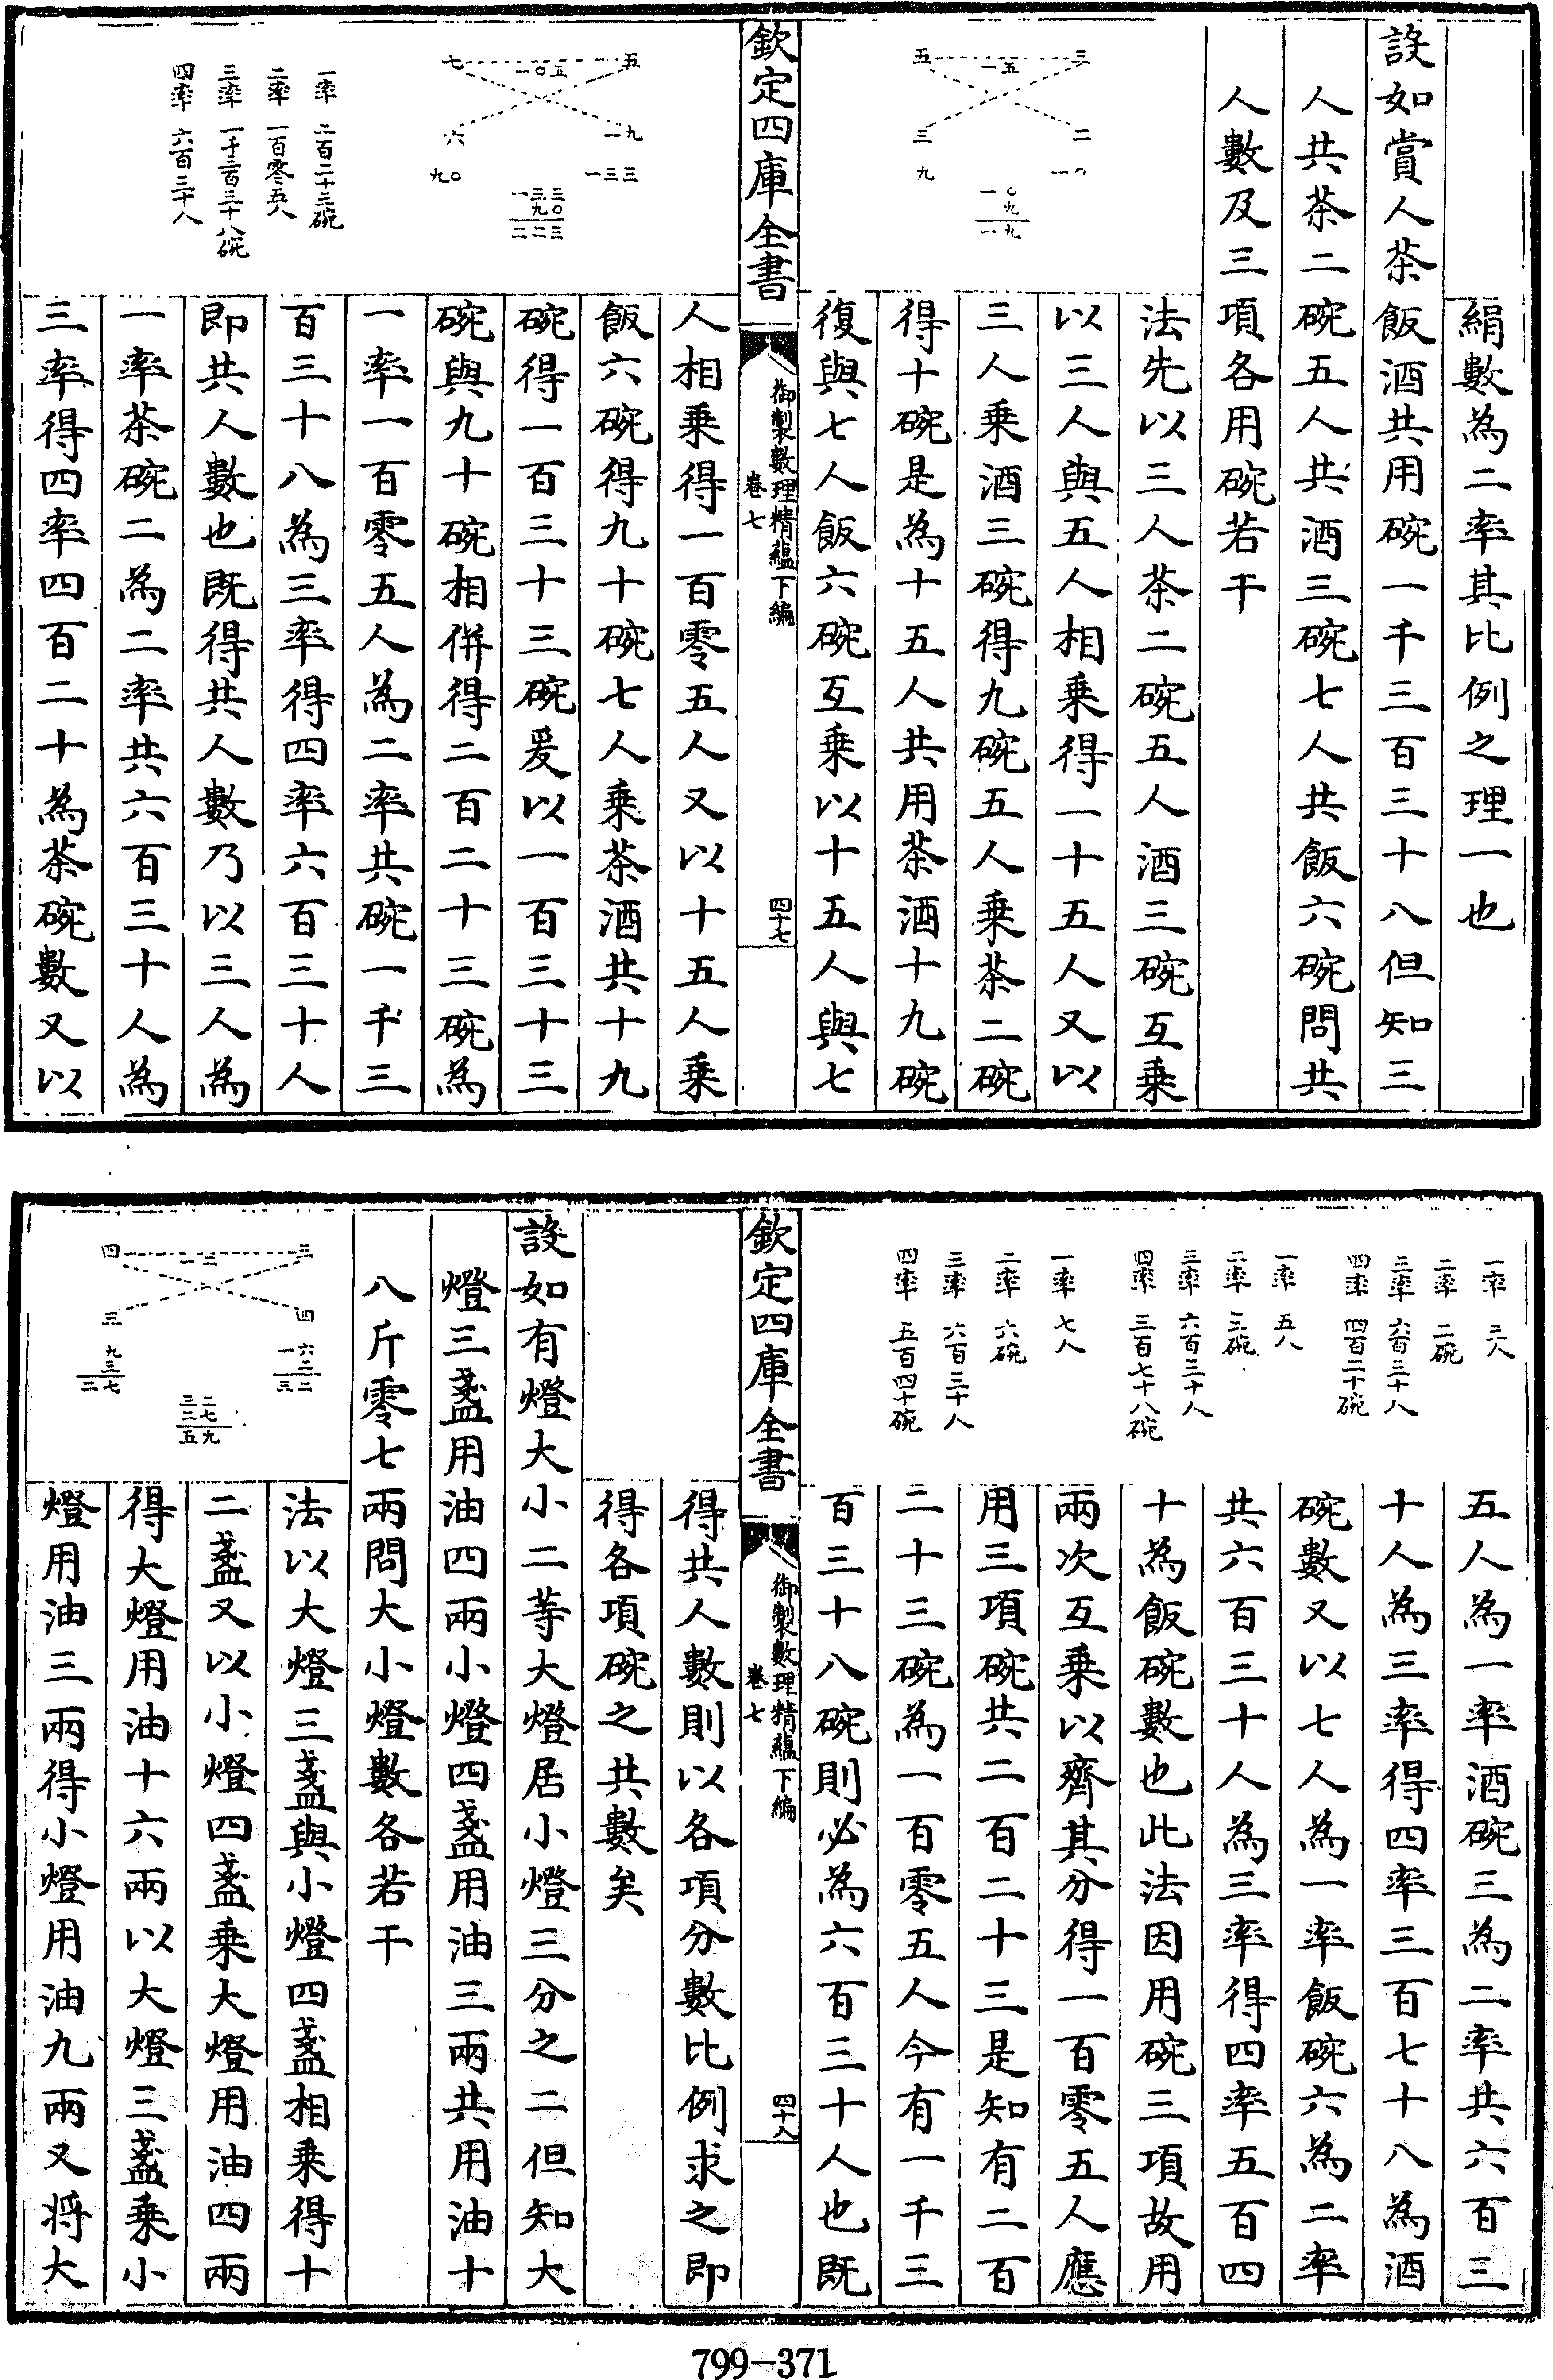 絹數為二率其比例之理一也
設如賞人茶飯酒共用碗一千三百三十八但知三
人共茶二碗五人共酒三碗七人共飯六碗問共
人數及三項各用碗若干
三
五
一五
二
三
一〇
九
一〇
九
一九
法先以三人茶二碗五人酒三碗互乗
以三人與五人相乗得一十五人又以
三人乗酒三碗得九碗五人乗茶二碗
得十碗是為十五人共用茶酒十九碗
復與七人飯六碗互乗以十五人與七
欽定四庫全書
御製數理精蘊下編
卷七
四十七
五
七
一〇五
一九
六
一三三
九〇
一三三
九〇
二二三
一率 二百二十三碗
二率 一百零五人
三率 一千三百三十八碗
四率 六百三十人
人相乗得一百零五人又以十五人乗
飯六碗得九十碗七人乗茶酒共十九
碗得一百三十三碗爰以一百三十三
碗與九十碗相併得二百二十三碗為
一率一百零五人為二率共碗一千三
百三十八為三率得四率六百三十人
即共人數也既得共人數乃以三人為
一率茶碗二為二率共六百三十人為
三率得四率四百二十為茶碗數又以
一率 三人
二率 二碗
三率 六百三十人
四率 四百二十碗
一率 五人
二率 三碗
三率 六百三十人
四率 三百七十八碗
一率 七人
二率 六碗
三率 六百三十人
四率 五百四十碗
五人為一率酒碗三為二率共六百三
十人為三率得四率三百七十八為酒
碗數又以七人為一率飯碗六為二率
共六百三十人為三率得四率五百四
十為飯碗數也此法因用碗三項故用
兩次互乗以齊其分得一百零五人應
用三項碗共二百二十三是知有二百
二十三碗為一百零五人今有一千三
百三十八碗則必為六百三十人也既
欽定四庫全書
御製數理精蘊下編
卷七
四十八
得共人數則以各項分數比例求之即
得各項碗之共數矣
設如有燈大小二等大燈居小燈三分之二但知大
燈三盞用油四兩小燈四盞用油三兩共用油十
八斤零七兩問大小燈數各若干
三
四
一二
四
三
一六
二
三二
九
三
二七
三二
二七
五九
法以大燈三盞與小燈四盞相乗得十
二盞又以小燈四盞乗大燈用油四兩
得大燈用油十六兩以大燈三盞乗小
燈用油三兩得小燈用油九兩又将大
799-371